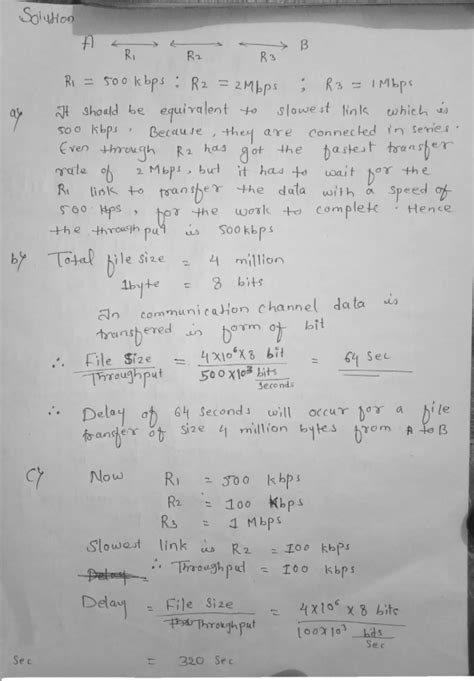 Solution
A ⟷ ⟷ ⟷ B
R1 R2 R3
R1 = 500 kbps ; R2 = 2Mbps ; R3 = 1Mbps
a) It should be equivalent to slowest link which is
500 kbps. Because, they are connected in series.
Even through R2 has got the fastest transfer
rate of 2 Mbps, but it has to wait for the
R1 link to transfer the data with a speed of
500 kbps, for the work to complete. Hence
the throuth put is 500kbps
b) Total file size = 4 million
1byte = 8 bits
In communication channel data is
transfered in form of bit
∴ File Size / Throughput = 4×10⁶×8 bit / 500×10³ bits/seconds = 64 Sec
∴ Delay of 64 Seconds will occur for a file
transfer of size 4 million bytes from A to B
C) Now R1 = 500 kbps
R2 = 100 kbps
R3 = 1 Mbps
Slowest link is R2 = 100 kbps
Delay ∴ Throughput = 100 kbps
Delay = File Size / Throughput = 4×10⁶ × 8 bits / 100×10³ bits/Sec
Sec = 320 Sec